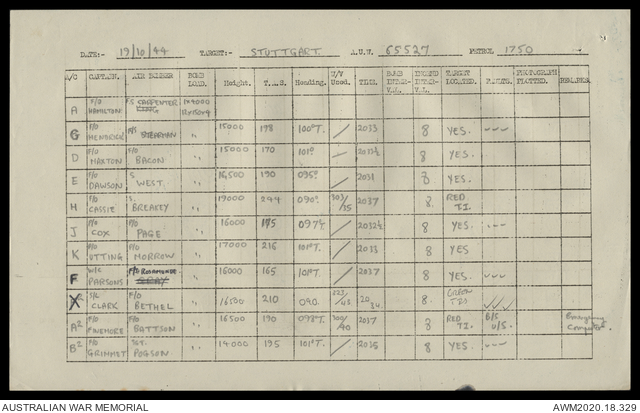 DATE:- 19/10/44 TARGET:- STUTTGART. A.U.W. 65527 PETROL 1750
A/C CAPTAIN. AIR BOMBER BOMB LOAD. Height. T.A.S. Heading. W/V Used. TIME. BOMB INTER- VAL. TARGET LOCATED. PHOTOGRAPH PLOTTED. REMARKS.
A F/O HAMILTON F/S CARPENTER 1x4000
G F/O HENDRICK F/S STEARMAN " 15000 178 100°T. / 2033 8 YES.
D F/O MAXTON F/O BACON " 15000 170 101° / 2033½ 8 YES.
E F/O DAWSON S WEST. " 16,500 190 095° / 2031 8 YES.
H F/O CASSIE S. BREAKEY " 19000 244 090° 30/35 2037 8. RED T.I.
J F/O COX F/O PAGE " 16000 175 097°T. / 2032½ 8 YES.
K F/O UTTING F/O MORROW " 17000 216 101°T. / 2033 8 YES
F W/C PARSONS F/O " 16000 165 101°T. / 2037 8 YES.
S/L CLARK F/O BETHEL " 16500 210 090. 8. GREEN
A² F/O FINEMORE F/O BATTSON " 16500 190 098°T. 300/40 2037 8 RED T.I. U/S.
B² F/O GRIMMET SGT. POGSON " 14000 195 101°T. / 2035 8 YES.
AUSTRALIAN WAR MEMORIAL AWM2020.18.329